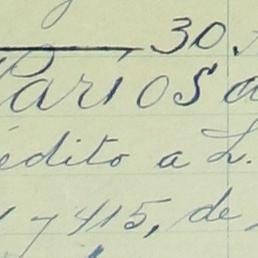 30.
Varios a
édito a L.
1 y 415, de